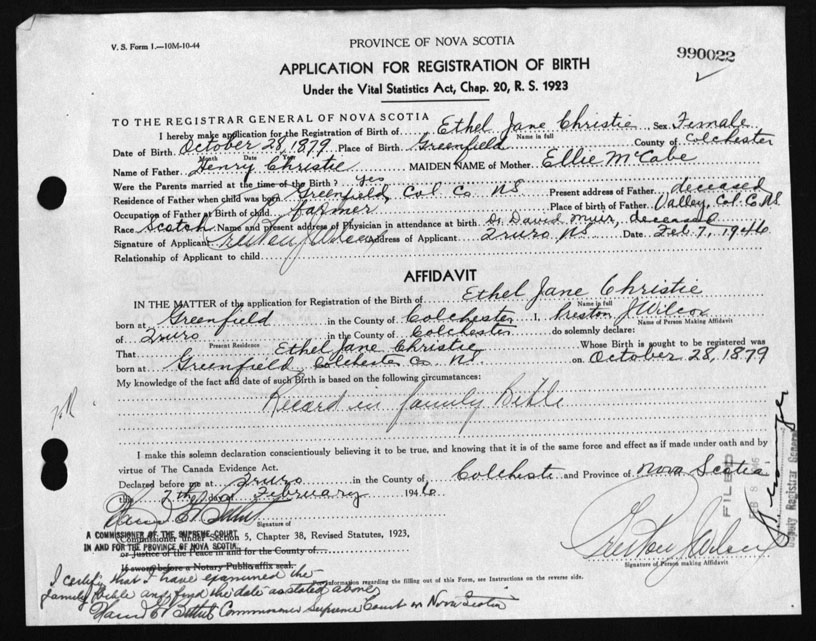 V. S. Form 1.—10M-10-44
PROVINCE OF NOVA SCOTIA
990022
APPLICATION FOR REGISTRATION OF BIRTH
Under the Vital Statistics Act, Chap. 20, R. S. 1923
TO THE REGISTRAR GENERAL OF NOVA SCOTIA
I hereby make application for the Registration of Birth of Ethel Jane Christie, Sex Female
Name in full
Date of Birth October 28, 1879 Place of Birth Greenfield County of Colchester
Month Date Year
Name of Father Henry Christie MAIDEN NAME of Mother Ellie McCabe
Were the Parents married at the time of the Birth? yes
Residence of Father when child was born Greenfield, Col. Co. NS Present address of Father, deceased
Occupation of Father at Birth of child farmer Place of birth of Father Valley, Col. Co. NS
Race Scotch Name and present address of Physician in attendance at birth Dr. David Muir, deceased
Signature of Applicant Address of Applicant Truro, NS Date Feb 7, 1946
Relationship of Applicant to child
AFFIDAVIT
IN THE MATTER of the application for Registration of the Birth of Ethel Jane Christie
Name in full
born at Greenfield in the County of Colchester I, Creston J Wilcox
Name of Person Making Affidavit
of Truro in the County of Colchester do solemnly declare:
Present Residence
That Ethel Jane Christie Whose Birth is sought to be registered was
born at Greenfield Colchester Co NS. on October 28, 1879
My knowledge of the fact and date of such Birth is based on the following circumstances:
Record in family Bible
I make this solemn declaration conscientiously believing it to be true, and knowing that it is of the same force and effect as if made under oath and by
virtue of The Canada Evidence Act.
Declared before me at Truro in the County of Colchester and Province of Nova Scotia
this 7th day of February 1946
Signature of
A COMMISSIONER OF THE SUPREME COURT
IN AND FOR THE PROVINCE OF NOVA SCOTIA
Commissioner under Section 5, Chapter 38, Revised Statutes, 1923,
or Justice of the Peace in and for the County of
If sworn before a Notary Public affix seal.
Signature of Person making Affidavit
For information regarding the filling out of this Form, see Instructions on the reverse side.
I certify that I have examined the
family Bible and find the date as stated above
Commissioner Supreme Court in Nova Scotia
FILED
Deputy Registrar General